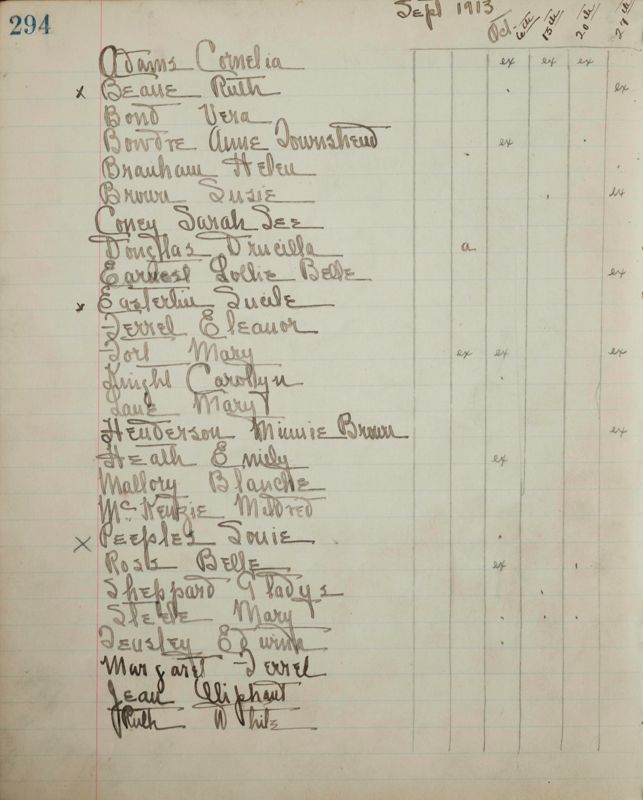 294
Sept 1913
Oct- 6th 13th 20th 27th
Adams Cornelia ex ex ex
x Beane Ruth ex
Bond Vera
Bowdre Anne Townshend ex
Branham Helen
Brown Susie ex
Coney Sarah Lee
Douglas Drucilla a
Earnest Lollie Belle ex
x Easterlin Lucile
Terrel Eleanor
Fort Mary ex ex ex
Knight Carollyn
Lane Mary
Henderson Minnie Brown ex
Heath Emily ex
Mallory Blanche
McKenzie Mildred
x Peeples Louie
Ross Belle ex
Sheppard Gladys
Steele Mary
Tensley Edwina
Margaret Terrel
Jean Oliphant
Ruth White